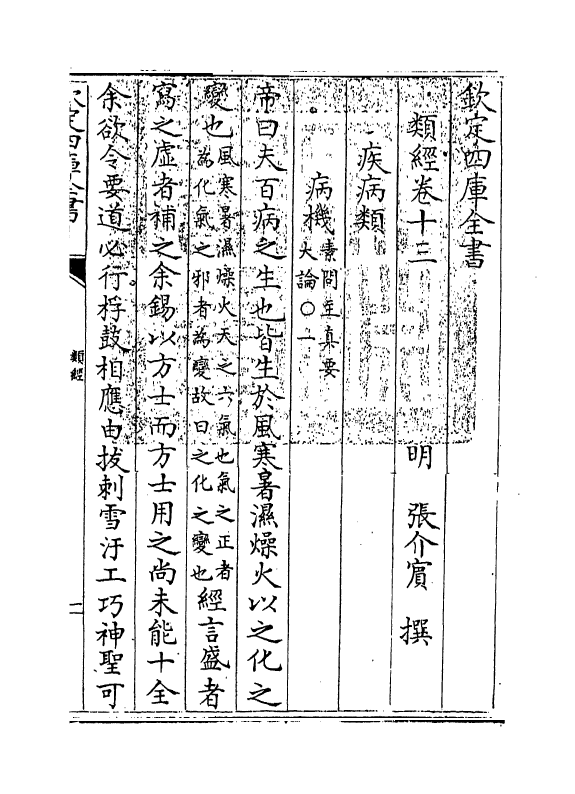 欽定四庫全書
類經卷十三
明 張介賓 撰
疾病類
病機素問至真要大論○一
帝曰夫百病之生也皆生於風寒暑濕燥火以之化之
變也風寒暑濕燥火天之六氣也氣之正者為化氣之邪者為變故曰之化之變也經言盛者
寫之虛者補之余錫以方士而方士用之尚未能十全
余欲令要道必行桴鼓相應由拔刺雪汙工巧神聖可
欽定四庫全書
類經